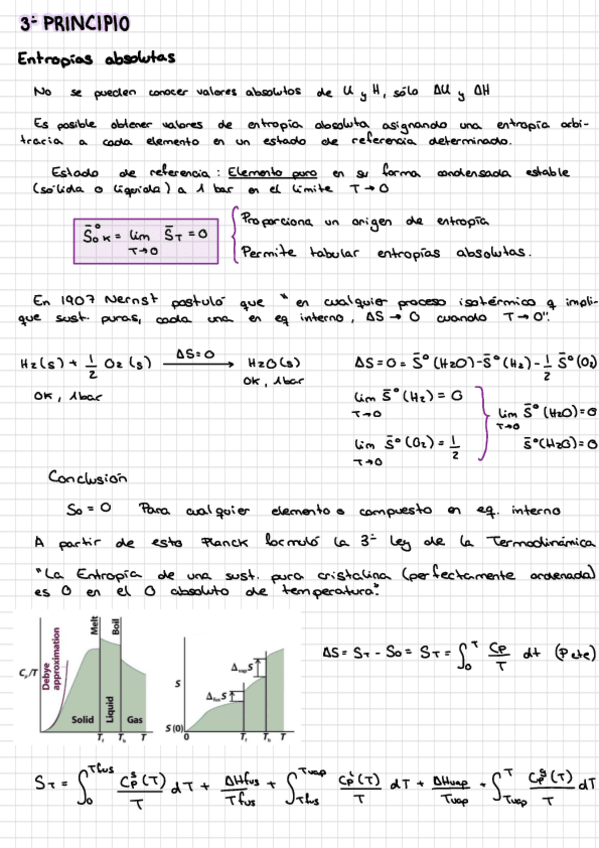 3º PRINCIPIO
Entropías absolutas
No se pueden conocer valores absolutos de U y H, sólo ΔU y ΔH
Es posible obtener valores de entropía absoluta asignando una entropía arbi-
traria a cada elemento en un estado de referencia determinado.
Estado de referencia : Elemento puro en su forma condensada estable
(sólida o líquida) a 1 bar en el límite T→0
S̄°₀ₖ = lim S̄_T = 0
T→0
Proporciona un origen de entropía
Permite tabular entropías absolutas.
En 1907 Nernst postuló que "en cualquier proceso isotérmico q impli-
que sust. puras, cada una en eq interno, ΔS → 0 cuando T → 0".
H₂(s) + 1/2 O₂(s) —ΔS=0→ H₂O(s)
0K, 1bar
0K, 1bar
ΔS = 0 = S̄°(H₂O) - S̄°(H₂) - 1/2 S̄°(O₂)
lim S̄°(H₂) = 0
T→0
lim S̄°(O₂) = 1/2
T→0
lim S̄°(H₂O) = 0
T→0
S̄°(H₂O) = 0
Conclusión
S₀ = 0 Para cualquier elemento o compuesto en eq. interno
A partir de esto Planck formuló la 3ª Ley de la Termodinámica
"La Entropía de una sust. pura cristalina (perfectamente ordenada)
es 0 en el 0 absoluto de temperatura".
Cₚ/T
Debye approximation
Melt
Boil
Solid
Liquid
Gas
T_f T_b T
S
S(0)
Δ_vap S
Δ_fus S
0 T_f T_b T
ΔS = S_T - S₀ = S_T = ∫₀ᵀ Cp/T dt (P cte)
S_T = ∫₀^Tfus Cpˢ(T)/T dT + ΔHfus/Tfus + ∫_Tfus^Tvap Cpˡ(T)/T dT + ΔHvap/Tvap + ∫_Tvap^T Cpᵍ(T)/T dT